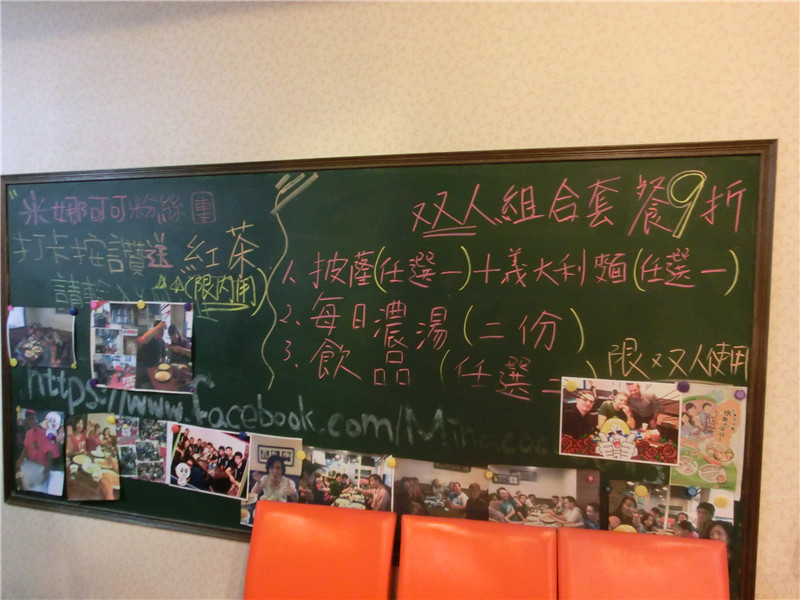 米娜可可粉絲團
打卡按讚送紅茶
(限內用)
請輸入
双人組合套餐9折
1. 披薩(任選一)十義大利麵(任選一)
2. 每日濃湯(二份)
3. 飲品(任選二)
限双人使用
https://www.facebook.com/Minacoc